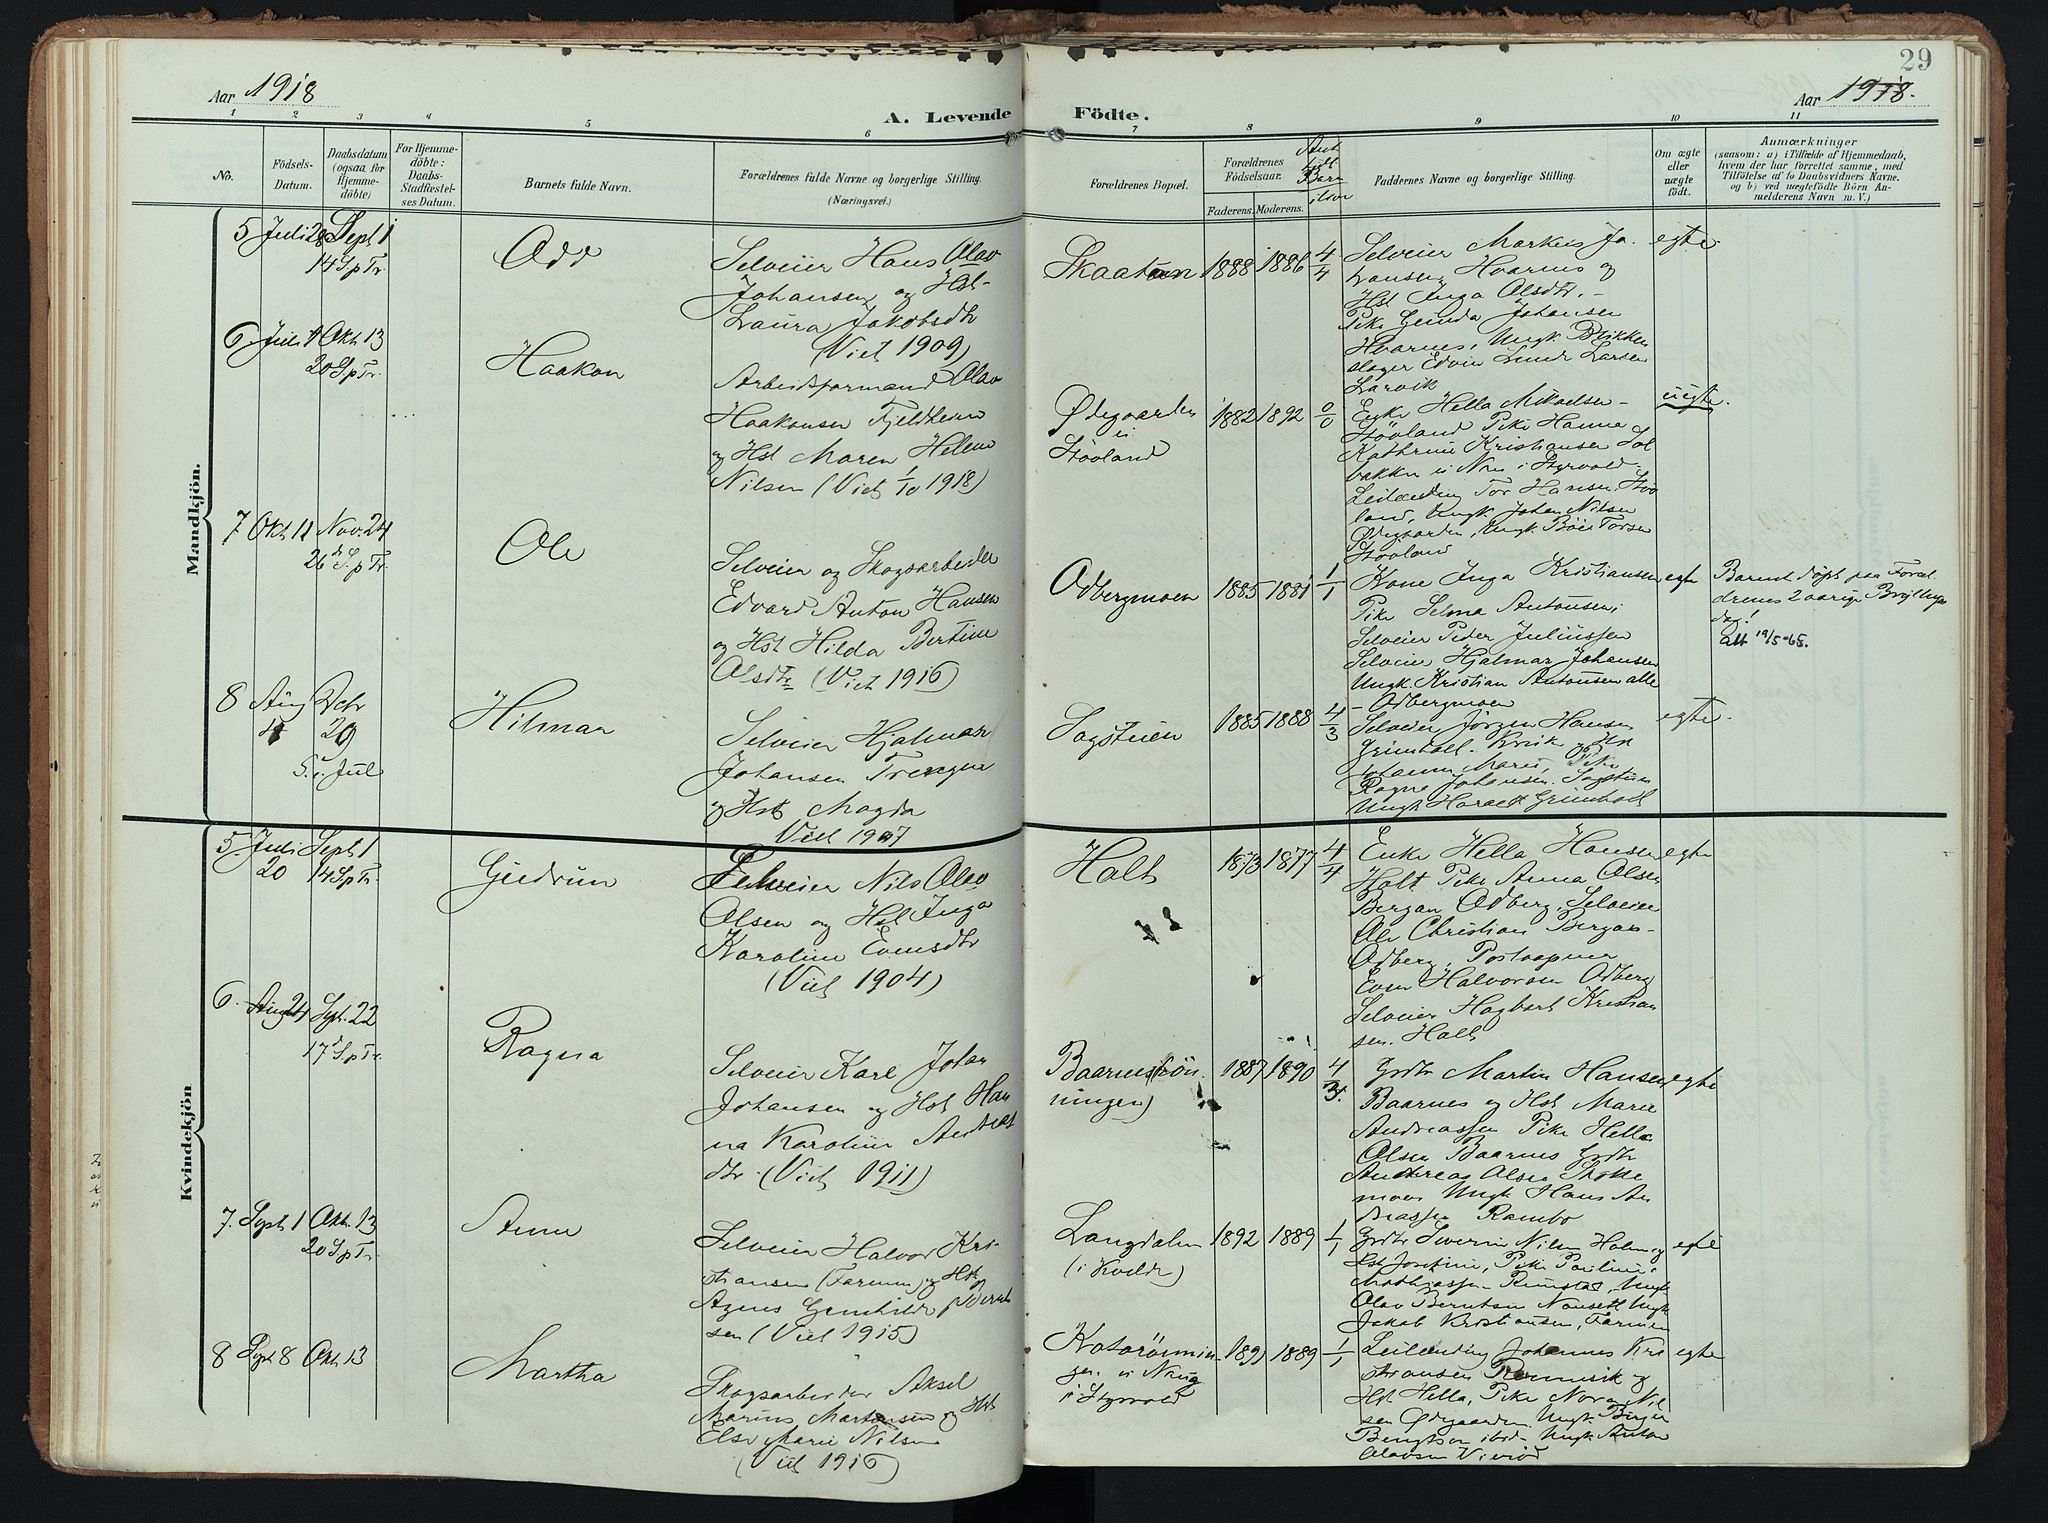 29
Aar 1918
A. Levende Födte.
Aar 1918.
1 2 3 4 5 6 7 8 9 10 11
No.
Födsels-Datum.
Daabsdatum (ogsaa for Hjemmedöbte)
For Hjemmedöbte: Daabs-Stadfæstelses Datum.
Barnets fulde Navn.
Forældrenes fulde Navne og borgerlige Stilling.
(Næringsvei.)
Forældrenes Bopæl.
Forældrenes Födselsaar.
Faderens. Moderens.
Faddernes Navne og borgerlige Stilling.
Om ægte eller uægte födt.
Anmærkninger
(saasom: a) i Tilfælde af Hjemmedaab,
hvem der har forrettet samme, med
Tilföielse af to Daabsvidners Navne.
og b) ved uægtefödte Börn Anmelderens Navn m. V.)
Mandkjön.
5 Juli 28 Sept 1
14 S p Tr
Odd
Selveier Hans Olav
Johansen og Hst
Laura Jakobsdtr
(Viet 1909)
Skaatun 1888 1886 4/4
Selveier Markus Johansen
Hvarnes og
Hst Inga Olsdtr. -
Pike Gunda Johansen
Hvarnes, Ungk Blikkenslager
Edvin Lund Larsen
Larvik
egte
6 Juli 9 Okt 13
20 S p Tr.
Haakon
Arbeidsformand Olav
Haakonsen Fjeldheim
og Hst Maren Helene
Nilsen (Viet 1/10 1918)
Ødegaarden
u.
Stövland
1882 1892 0/0
Enke Hella Mikaelsen
Stövland Pike Hanne
Kathrine Kristiansen Solbakken
u Nes i Styrvold
Leilending Tor Hansen Stövland,
Ungk. Johan Nilsen
Ødegaarden, Ungk Böie Torsen
Stövland
uegte.
7 Okt 11 Nov. 24
26 S. p Tr.
Ole
Selveier og Skogsarbeider
Edvard Anton Hansen
og Hst Hilda Bertine
Olsdtr (Viet 1916)
Odbergmoen 1885 1881 1/1
Kone Inga Kristiansen
Pike Selma Antonsen,
Selveier Peder Juliussen
Selveier Hjalmar Johansen
Ungk. Kristian Antonsen alle
- Odbergmoen
egte
Barnet döpt paa Forældrenes
2 aarige Bryllupsdag!
att 19/5-65.
8 Aug Dcbr
4 29
S. i Jul
Hilmar
Selveier Hjalmar
Johansen
og Hst Magda
Viet 1907
Sagstuen 1885 1888 4/3
Selveier Jörgen Hansen
Grinholt
Johanne Marie, Pike
Ragna Johansen Sagstuen
Ungk Harald Grinholt
egte.
Kvindekjön
5. Juli Sept 1
20 14 S p Tr.
Gudrun
Selveier Nils Olav
Olsen og Hst Inga
Karoline Evensdtr
(Viet 1904)
Holt 1873 1877 4/4
Enke Hella Hansen
Holt Pike Anna Olsen
Bergan Odberg, Selveier
Ole Christian Bergan
Odberg, Postaapner
Even Halvorsen Odberg
Selveier Hagbart Kristiansen.
Holt
egte
6. Aug 24 Sept. 22
17 S p Tr.
Ragna
Selveier Karl Johan
Johansen og Hst Hanna
Karoline Andreasdtr.
(Viet 1911)
Baarnes(rönningen)
1887 1890 4/3.
Grdbr Martin Hansen
Baarnes og Hst Marie
Andreassen Pike Hella
Olsen Baarnes Grdbr
Andreas Olsen
Ungk Hans Andreassen
Rambo
egte
7. Sept 1 Okt. 13
20 S. p Tr.
Anne
Selveier Halvor Kristiansen
(Farmen) og Hst
Agnes Gunhilde Berntsen
(Viet 1915)
Langdalen
(i Kvelde)
1892 1889 1/1
Grdbr Severin Nilsen Holm og
Hst Josefine, Pike Pauline
Mathiassen Rimstad, Ungk
Olav Berntsen Nanset Ungk
Jakob Kristiansen, Farmen
egte
8 Sept 8 Okt 13
Martha
Skogsarbeider Aksel
Marius Martinsen og Hst
Else Marie Nilsen
(Viet 1916)
u Nes
i Styrvold
1891 1889 1/1
Leilending Johannes Kristiansen
og
Hst Hella, Pike Nora Nilsen
Ødegaarden Ungk. Birger
Bengtson ibid Ungk Anton
Olavsen
egte